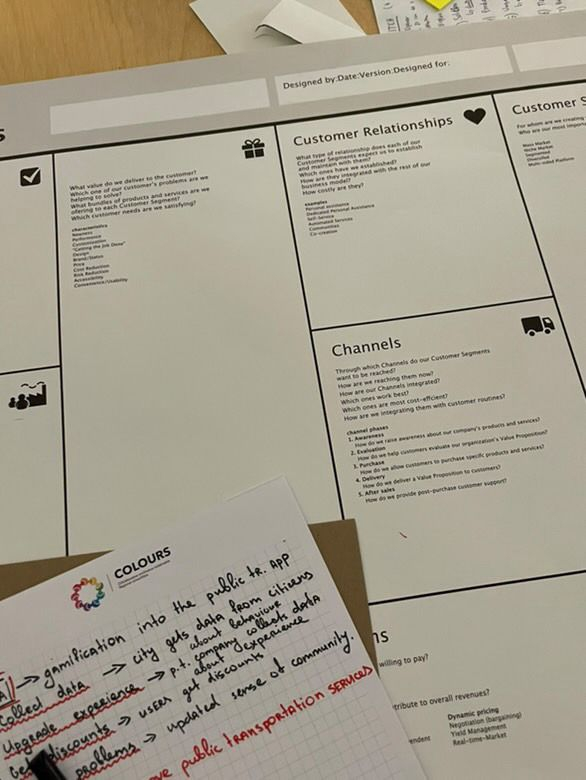 Designed by:Date:Version:Designed for:
What value do we deliver to the customer?
Which one of our customer's problems are we
helping to solve?
What bundles of products and services are we
ofering to each Customer Segment?
Which customer needs are we satisfying?
characteristics
Newness
Performance
Customization
"Getting the Job Done"
Design
Brand/Status
Price
Cost Reduction
Risk Reduction
Accessibility
Convenience/Usability
Customer Relationships
What type of relationship does each of our
Customer Segments expect us to establish
and maintain with them?
Which ones have we established?
How are they integrated with the rest of our
business model?
How costly are they?
examples
Personal assistance
Dedicated Personal Assistance
Self-Service
Automated Services
Communities
Co-creation
Customer S
For whom are we creating
Who are our most import
Mass Market
Niche Market
Segmented
Diversified
Multi-sided Platform
Channels
Through which Channels do our Customer Segments
want to be reached?
How are we reaching them now?
How are our Channels integrated?
Which ones work best?
Which ones are most cost-effcient?
How are we integrating them with customer routines?
channel phases
1. Awareness
How do we raise awareness about our company's products and services?
2. Evaluation
How do we help customers evaluate our organization's Value Proposition?
3. Purchase
How do we allow customers to purchase specific products and services?
4. Delivery
How do we deliver a Value Proposition to customers?
5. After sales
How do we provide post-purchase customer support?
willing to pay?
tribute to overall revenues?
Dynamic pricing
Negotiation (bargaining)
Yield Management
Real-time-Market
COLOURS
→ gamification into the public tr. APP
Collect data → city gets data from citizens
about behaviour
Upgrade experience → p.t. company collects data
about experience
discounts → users get discounts
problems → updated sense of community.
public transportation services